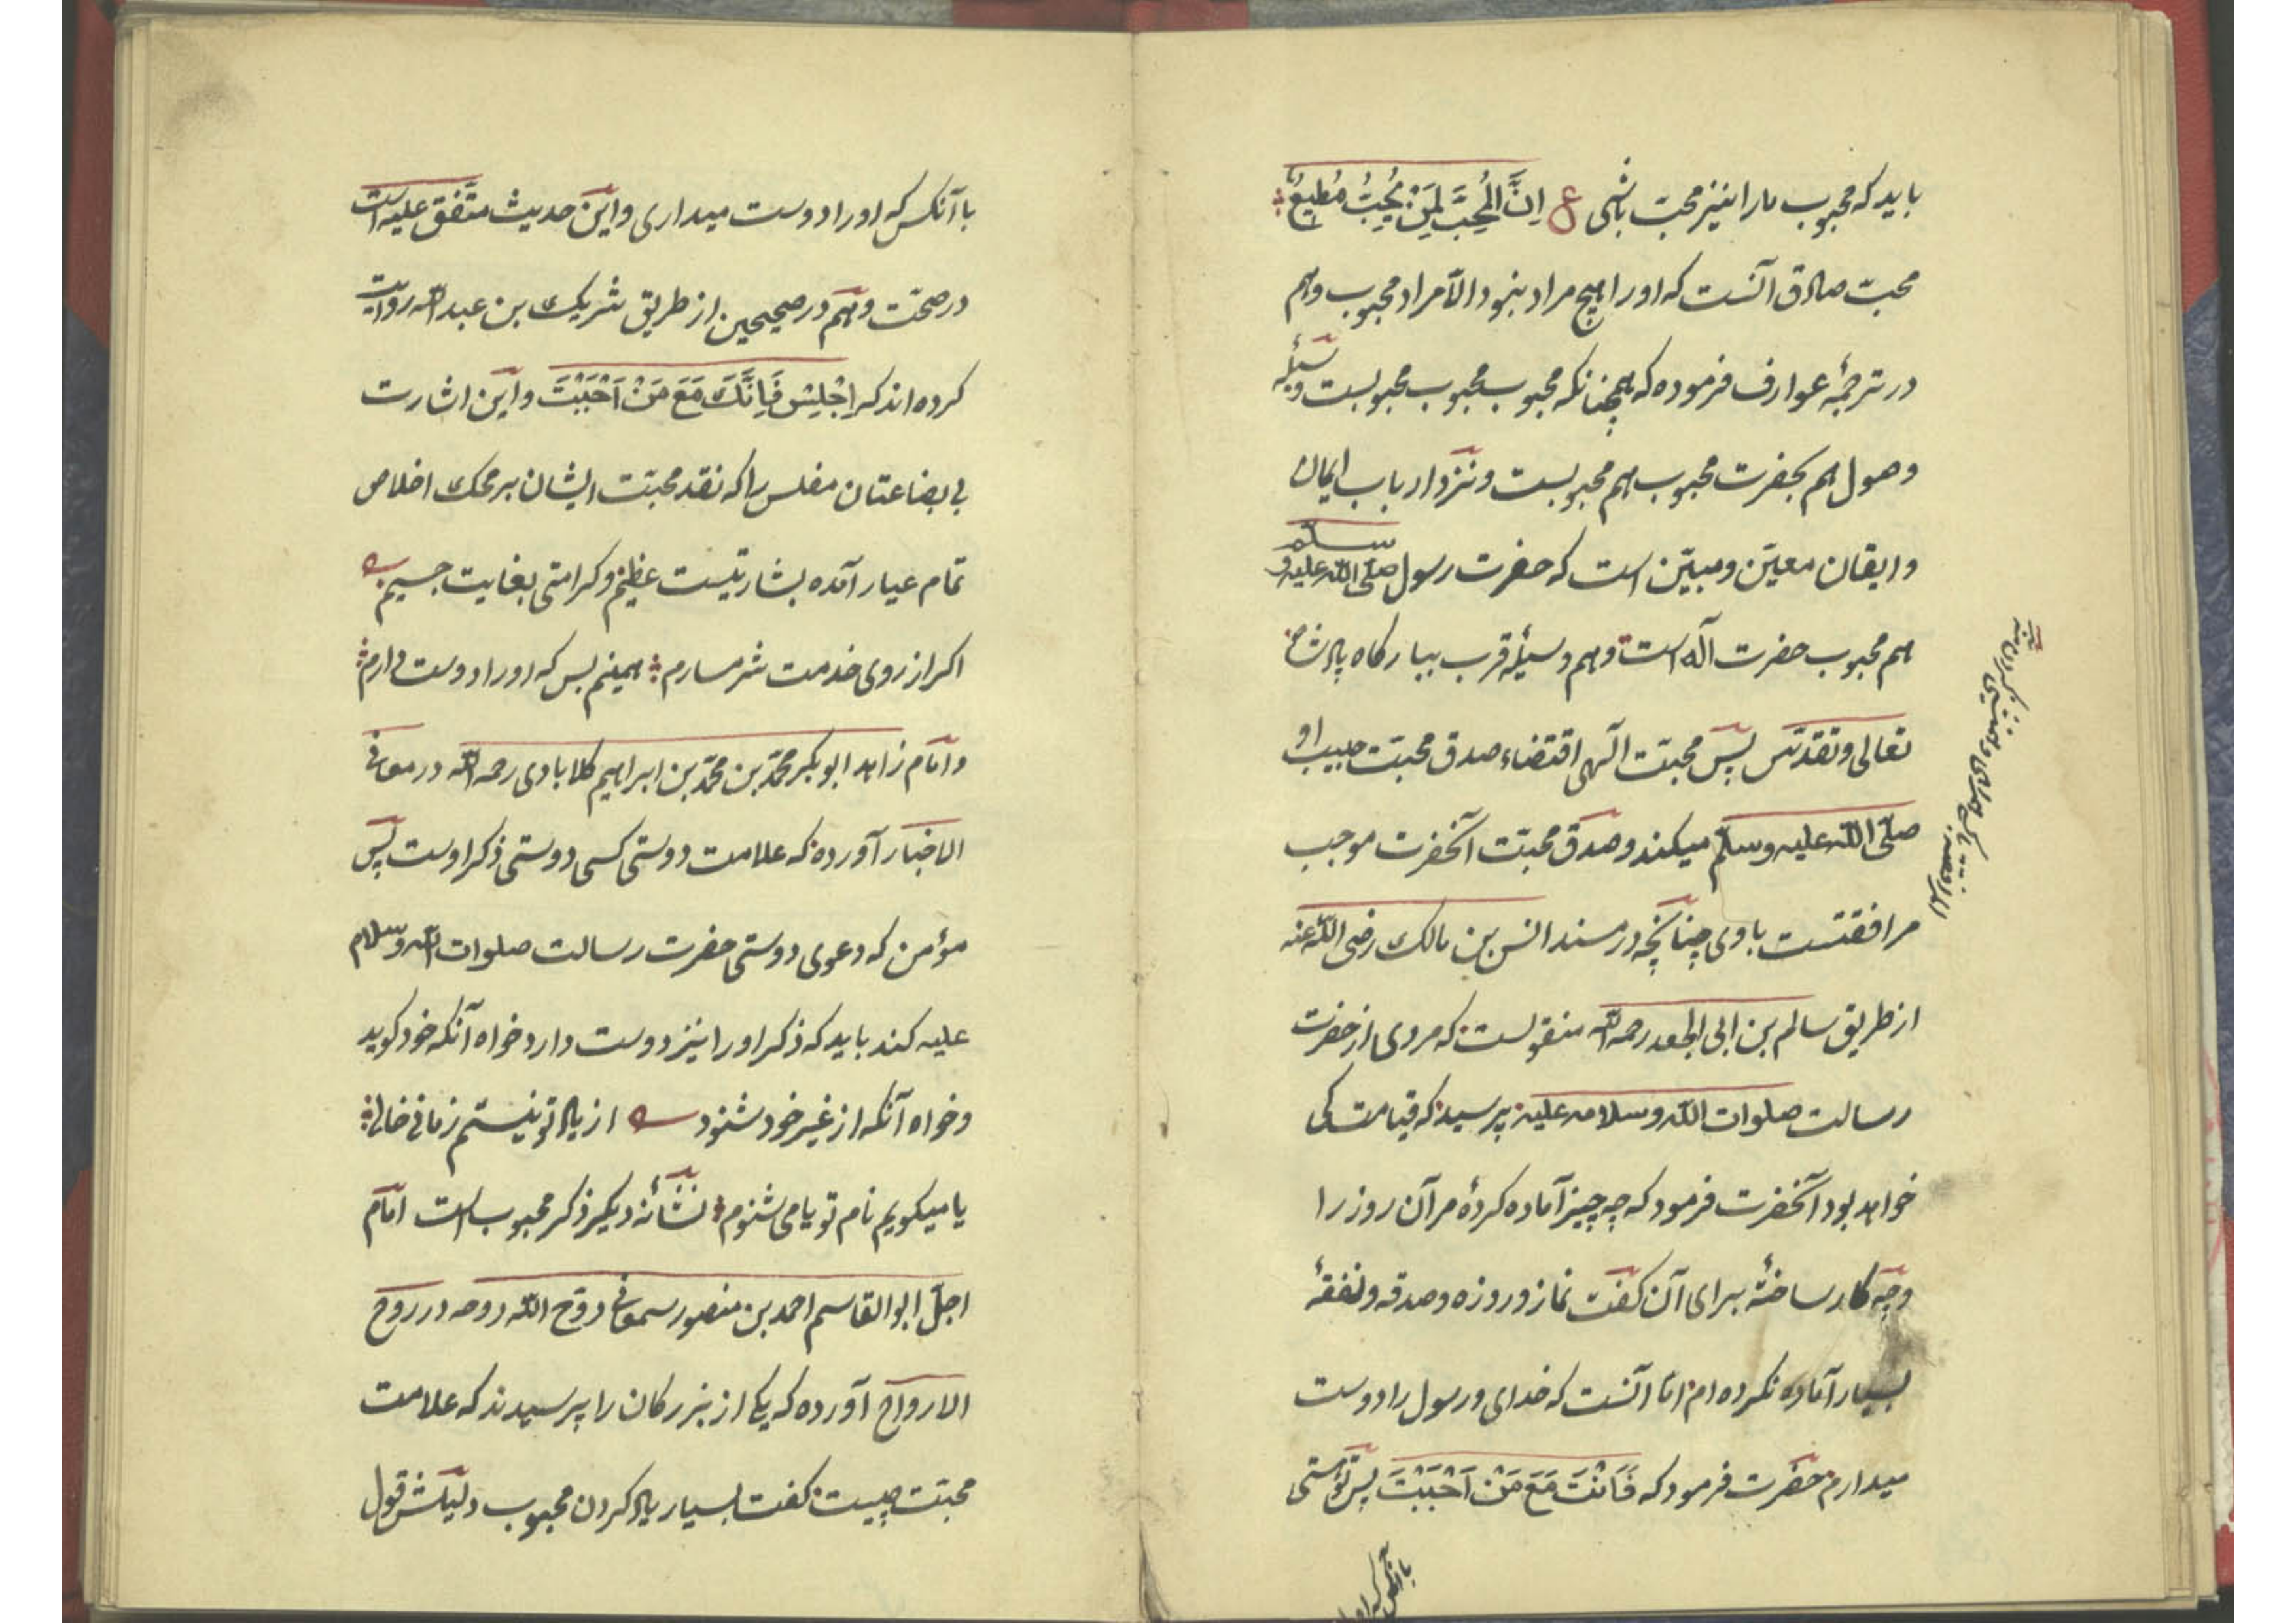 باید که محبوب ما را نیز محبّ باشی ع اِنَّ المُحِبَّ لِمَنْ یُحِبُّ مُطیعٌ
محبّ صادق آنست که او را هیچ مراد نبود الّا مراد محبوب و هم
در ترجمهٔ عوارف فرموده که همچنانکه محبوبِ محبوب محبوبست وسیلهٔ
وصول هم بحضرت محبوب هم محبوبست و نزد ارباب ایمان
و ایقان معیّن و مبیّن است که حضرت رسول صلّی اللّه علیه و سلم
هم محبوب حضرت آله است و هم وسیلهٔ قرب ببارکاه پادشاه
تعالی و تقدّس پس محبّت الٓهی اقتضاء صدق محبّت حبیب او
صلّی اللّه علیه وسلّم میکند و صدق محبّت آنحضرت موجب
مرافقتست با وی چنانچه در مسند انس بن مالک رضی اللّه عنه
از طریق سالم بن ابی الجعد رحمه اللّه منقولست که مردی از حضرت
رسالت صلوات اللّه وسلامه علیه پرسید که قیامت کی
خواهد بود آنحضرت فرمود که چه چیز آماده کردهٔ مر آن روز را
وچه کار ساختهٔ برای آن کفت نماز و روزه و صدقه و نفقهٔ
بسیار آماده نکرده ام امّا آنست که خدای و رسول را دوست
میدارم حضرت فرمود که فَاَنْتَ مَعَ مَنْ اَحْبَبْتَ پس تو هستی
با آنکس که او
با آنکس که او را دوست میداری و این حدیث متّفق علیه است
در صحّت و هم در صحیحین از طریق شریک بن عبد اللّه روایت
کرده اند که اِجْلِسْ فَاِنَّکَ مَعَ مَنْ اَحْبَبْتَ و این اشارت
بی بضاعتان مفلس را که نقد محبّت ایشان بر محک اخلاص
تمام عیار آمده بشارتیست عظیم و کرامتی بغایت جسیم
اکر از روی خدمت شرمسارم همینم بس که او را دوست دارم
و امام زاهد ابو بکر محمّد بن محمّد بن ابراهیم کلابادی رحمه اللّه در معانی
الاخبار آورده که علامت دوستی کسی دوستی ذکر اوست پس
مؤمن که دعوی دوستی حضرت رسالت صلوات اللّه وسلامه
علیه کند باید که ذکر او را نیز دوست دارد خواه آنکه خود کوید
و خواه آنکه از غیر خود شنود از یاد تو نیستم زمانی خالی
یا میکویم نام تو یا می شنوم نشانهٔ دیکر ذکر محبوب است امام
اجلّ ابو القاسم احمد بن منصور سمعانی روّح اللّه روحه در روح
الارواح آورده که یکی از بزرکان را پرسیدند که علامت
محبّت چیست کفت بسیار یاد کردن محبوب دلیلش قول